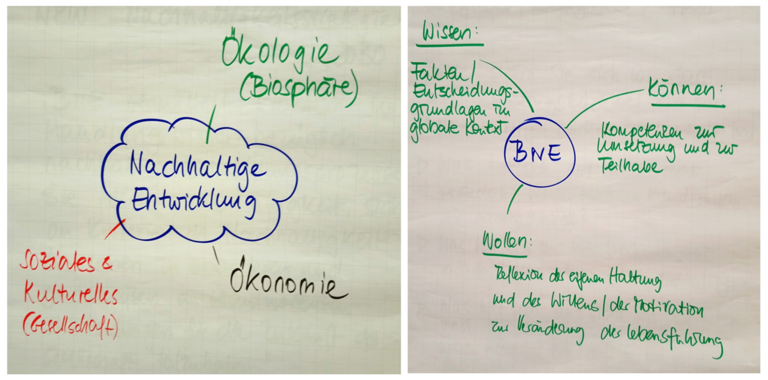 Ökologie
(Biosphäre)
Nachhaltige
Entwicklung
Soziales &
Kulturelles
(Gesellschaft)
Ökonomie
Wissen:
Fakten/
Entscheidungs-
grundlagen im
globale Kontext
BNE
Können:
Kompetenzen zur
Umsetzung und zur
Teilhabe
Wollen:
Reflexion des eigenen Haltung
und des Willens/der Motivation
zur Veränderung der Lebensführung